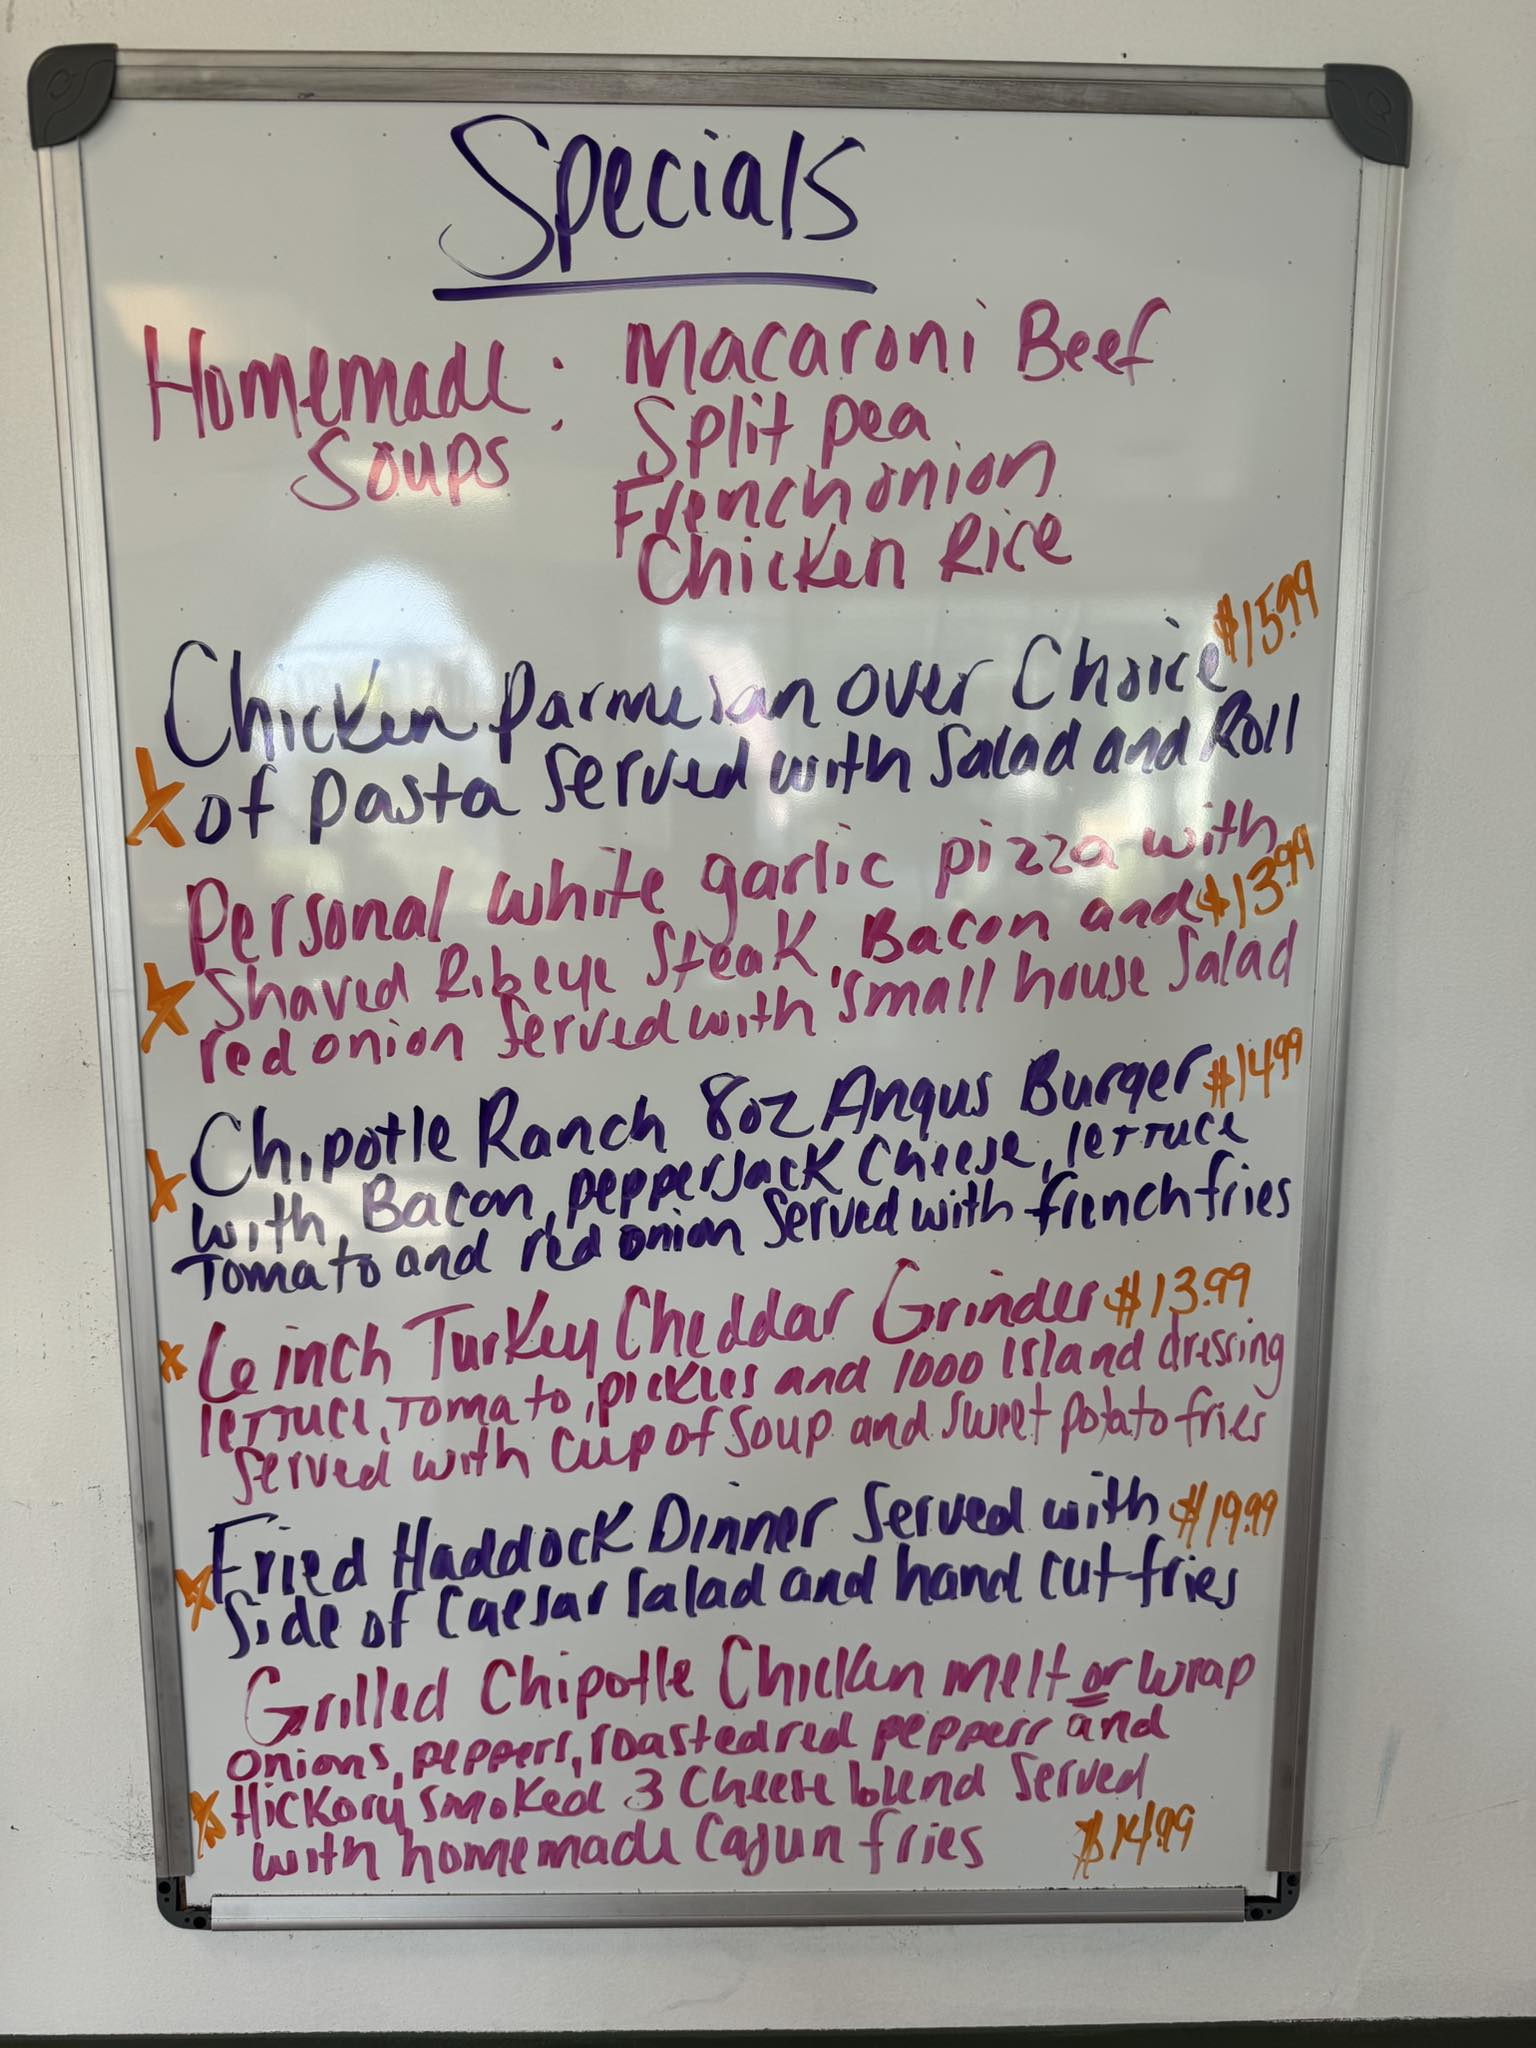 Specials
Homemade Soups : Macaroni Beef
Split pea
French onion
Chicken Rice
Chicken Parmesan over Choice $15.99
x of pasta Served with Salad and Roll
Personal white garlic pizza with
x Shaved Ribeye Steak, Bacon and $13.99
red onion Served with small house Salad
Chipotle Ranch 8oz Angus Burger $14.99
x with, Bacon, pepperjack Cheese, lettuce
Tomato and red onion Served with french fries
x 6 inch Turkey Cheddar Grinder $13.99
lettuce, Tomato, pickles and 1000 Island dressing
Served with cup of Soup and sweet potato fries
Fried Haddock Dinner Served with $19.99
x Side of Caesar Salad and hand cut fries
Grilled Chipotle Chicken melt or wrap
onions, peppers, roasted red peppers and
x Hickory smoked 3 Cheese blend Served
with homemade Cajun fries $14.99